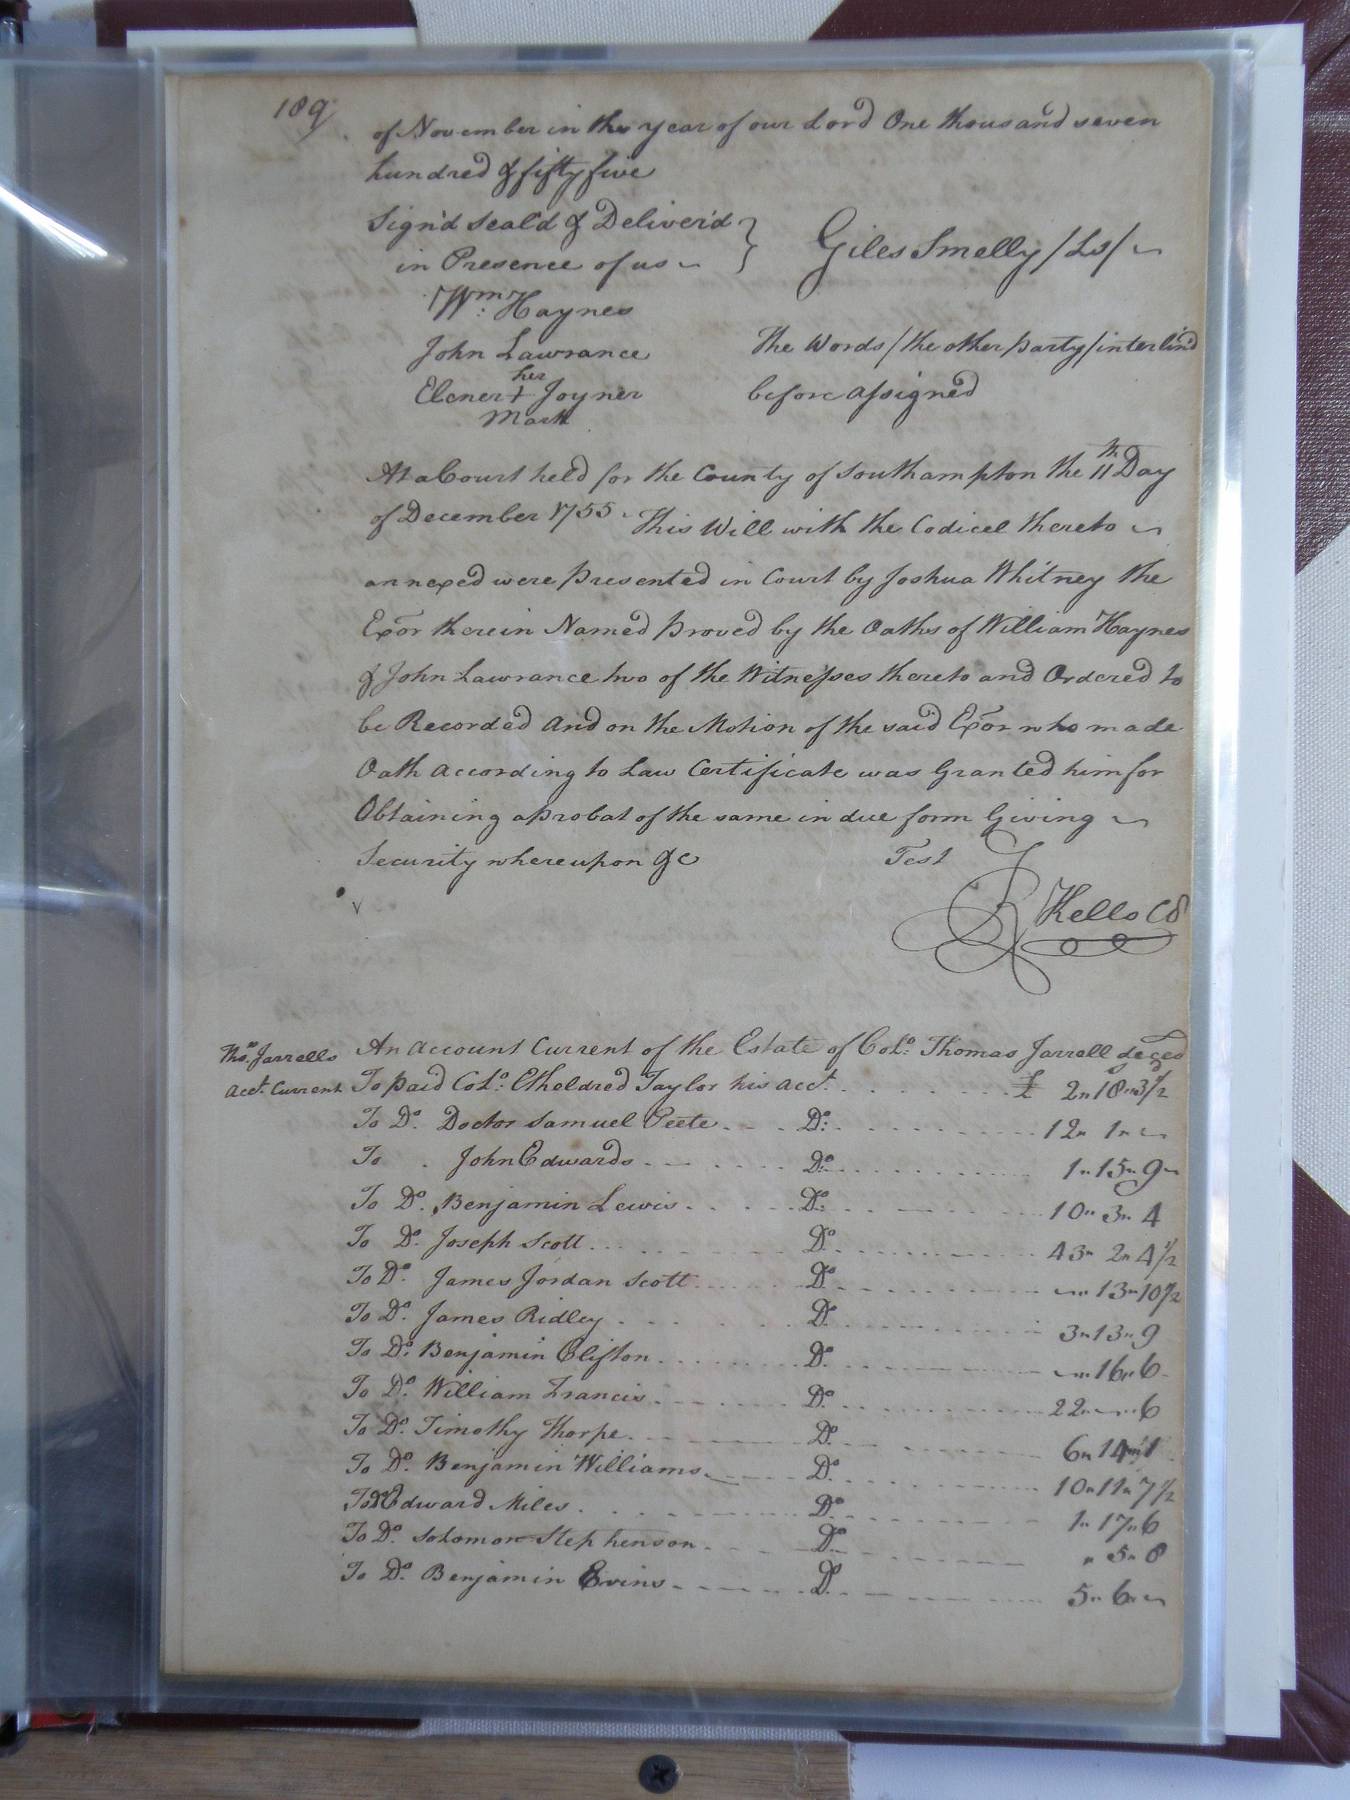 189
of November in the year of our Lord One thousand seven
hundred & fifty five
Sign'd seal'd & Deliver'd } Giles Smelly /Ls/
in Presence of us
Wm: Haynes
John Lawrance The Words /the other party/ interlin'd
her
Elener + Joyner before assigned
Mark
At a Court held for the County of Southampton the 11th Day
of December 1755 This Will with the Codicel thereto
annexed were presented in Court by Joshua Whitney the
Exor therein Named proved by the Oaths of William Haynes
& John Lawrance two of the Witnesses thereto and Ordered to
be Recorded And on the Motion of the said Exor who made
Oath according to Law Certificate was Granted him for
Obtaining a probat of the same in due form Giving
Security whereupon &c Test
R Kello C
Thos. Jarrells An Account Current of the Estate of Colo: Thomas Jarrell deced
Acct. Current To paid Colo: Etheldred Taylor his acct. £ 2" 18" 3 1/2
To Do. Doctor Samuel Peete Do: 12" 1"
To John Edwards Do. 1" 15" 9
To Do. Benjamin Lewis Do: 10" 3" 4
To Do. Joseph Scott Do. 43" 2" 4 1/2
To Do. James Jordan Scott Do " 13" 10 1/2
To Do. James Ridley Do. 3" 13" 9
To Do. Benjamin Clifton Do. " 16" 6
To Do. William Francis Do. 22" " 6
To Do. Timothy Thorpe Do. 6" 14" 1
To Do. Benjamin Williams Do. 10" 11" 7 1/2
To Do Edward Miles Do. 1" 17" 6
To Do. Solomon Stephenson Do. " 5" 8
To Do. Benjamin Evins Do. 5" 6"